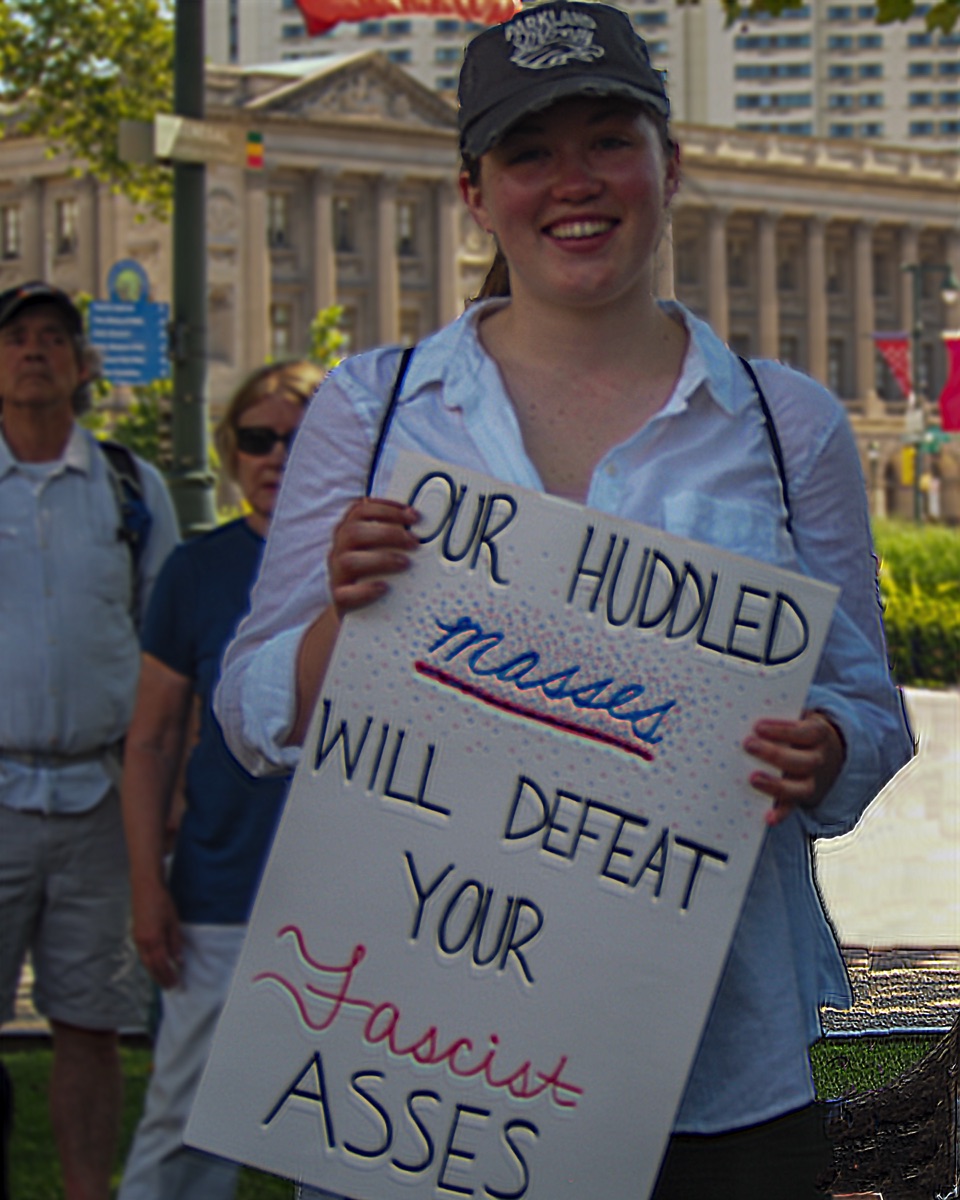 PARKLAND
OUR HUDDLED
masses
WILL DEFEAT
YOUR
Fascist
ASSES